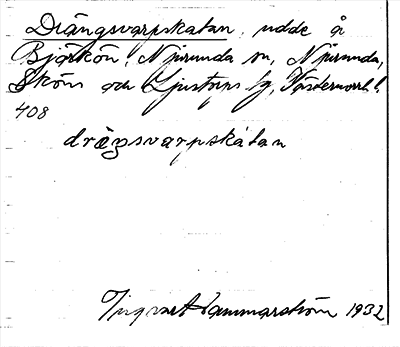 Drängsvarpskatan, udde å
Björkön, Njurunda sn, Njurunda,
Sköns och Ljustorps tg, Västernorrl. l.
408
drängsvarpskátan
Ingvar Hammarström 1932